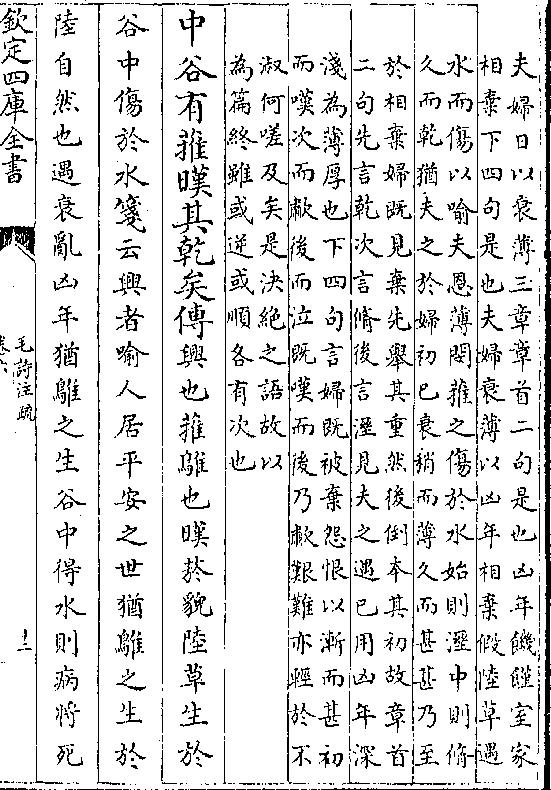 夫婦日以衰薄三章章首二句是也凶年饑饉室家
相棄下四句是也夫婦衰薄以凶年相棄假陸草遇
水而傷以喻夫恩薄閔蓷之傷於水始則溼中則脩
久而乾猶夫之於婦初已衰稍而薄久而甚甚乃至
於相棄婦既見棄先舉其重然後倒本其初故章首
二句先言乾次言脩後言溼見夫之遇已用凶年深
淺為薄厚也下四句言婦既被棄怨恨以漸而甚初
而嘆次而歗後而泣既嘆而後乃歗艱難亦輕於不
淑何嗟及矣是決絶之語故以
為篇終雖或逆或順各有次也
中谷有蓷暵其乾矣傳興也蓷鵻也暵菸貌陸草生於
谷中傷於水箋云興者喻人居平安之世猶鵻之生於
陸自然也遇衰亂凶年猶鵻之生谷中得水則病將死
欽定四庫全書
毛詩注疏
卷六
十二